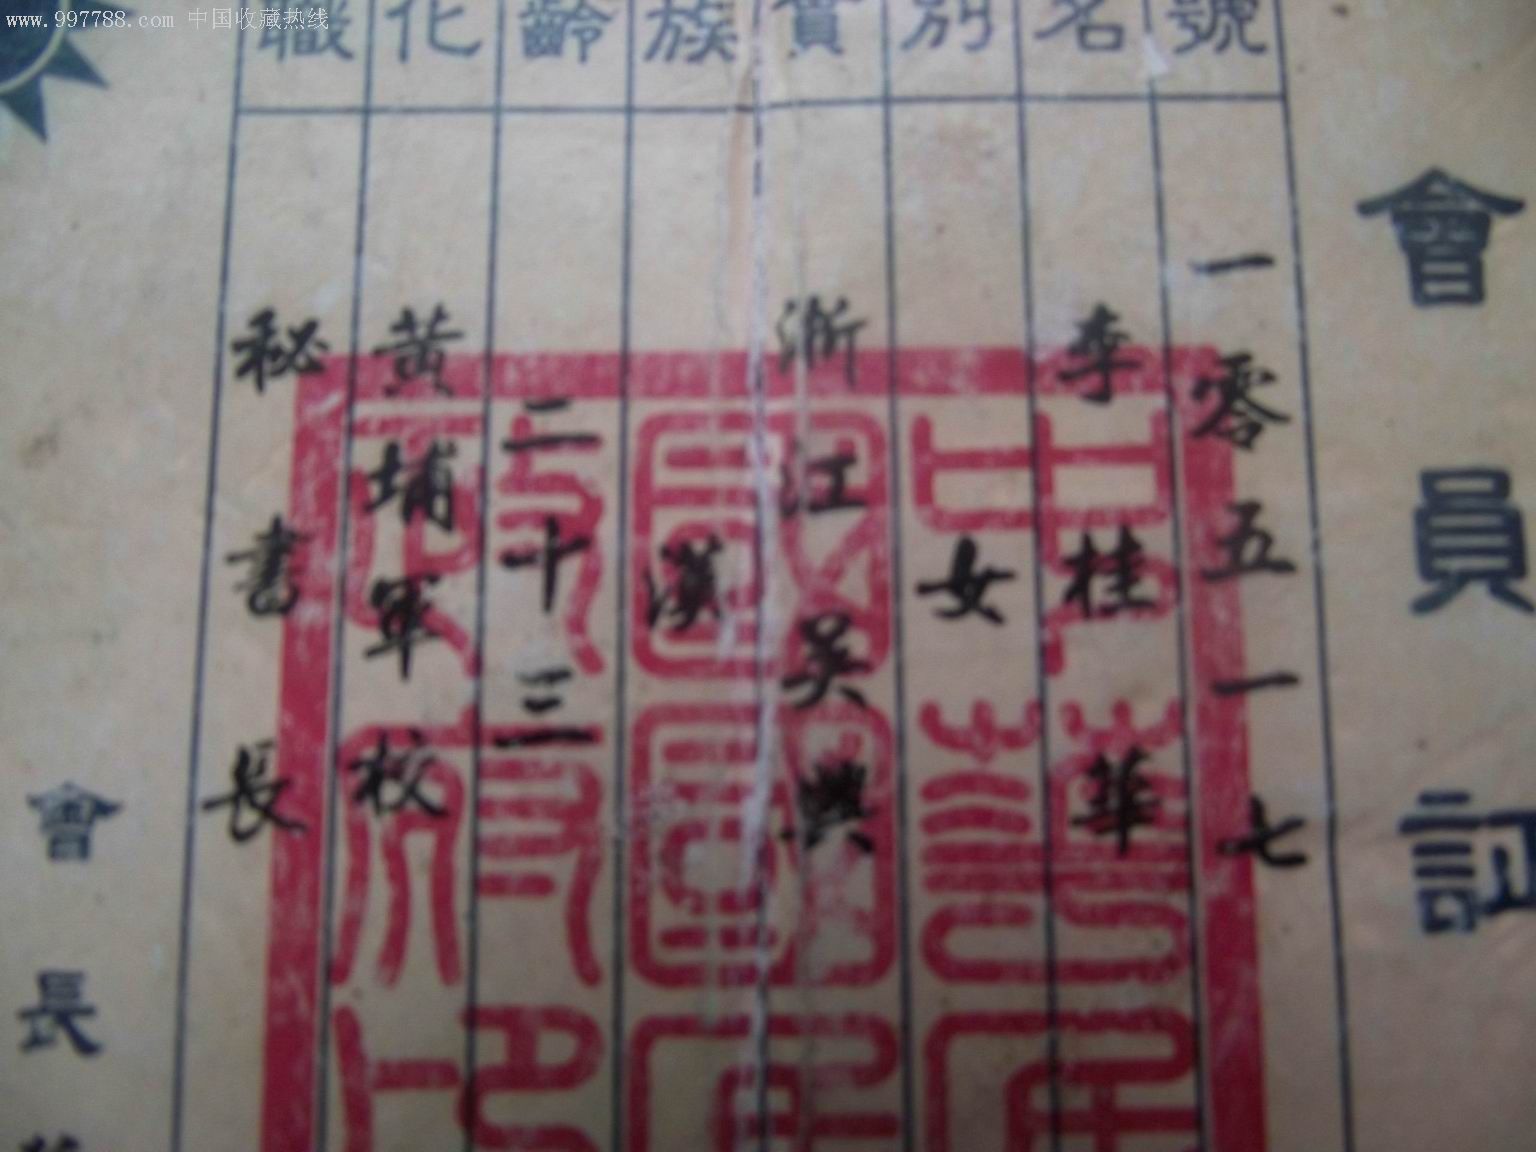 www.997788.com 中国收藏热线
會員証
號 一零五一七
名 李桂華
別 女
貫 浙江吳興
族 漢
齡 二十三
化 黃埔軍校
職 秘書長
會長